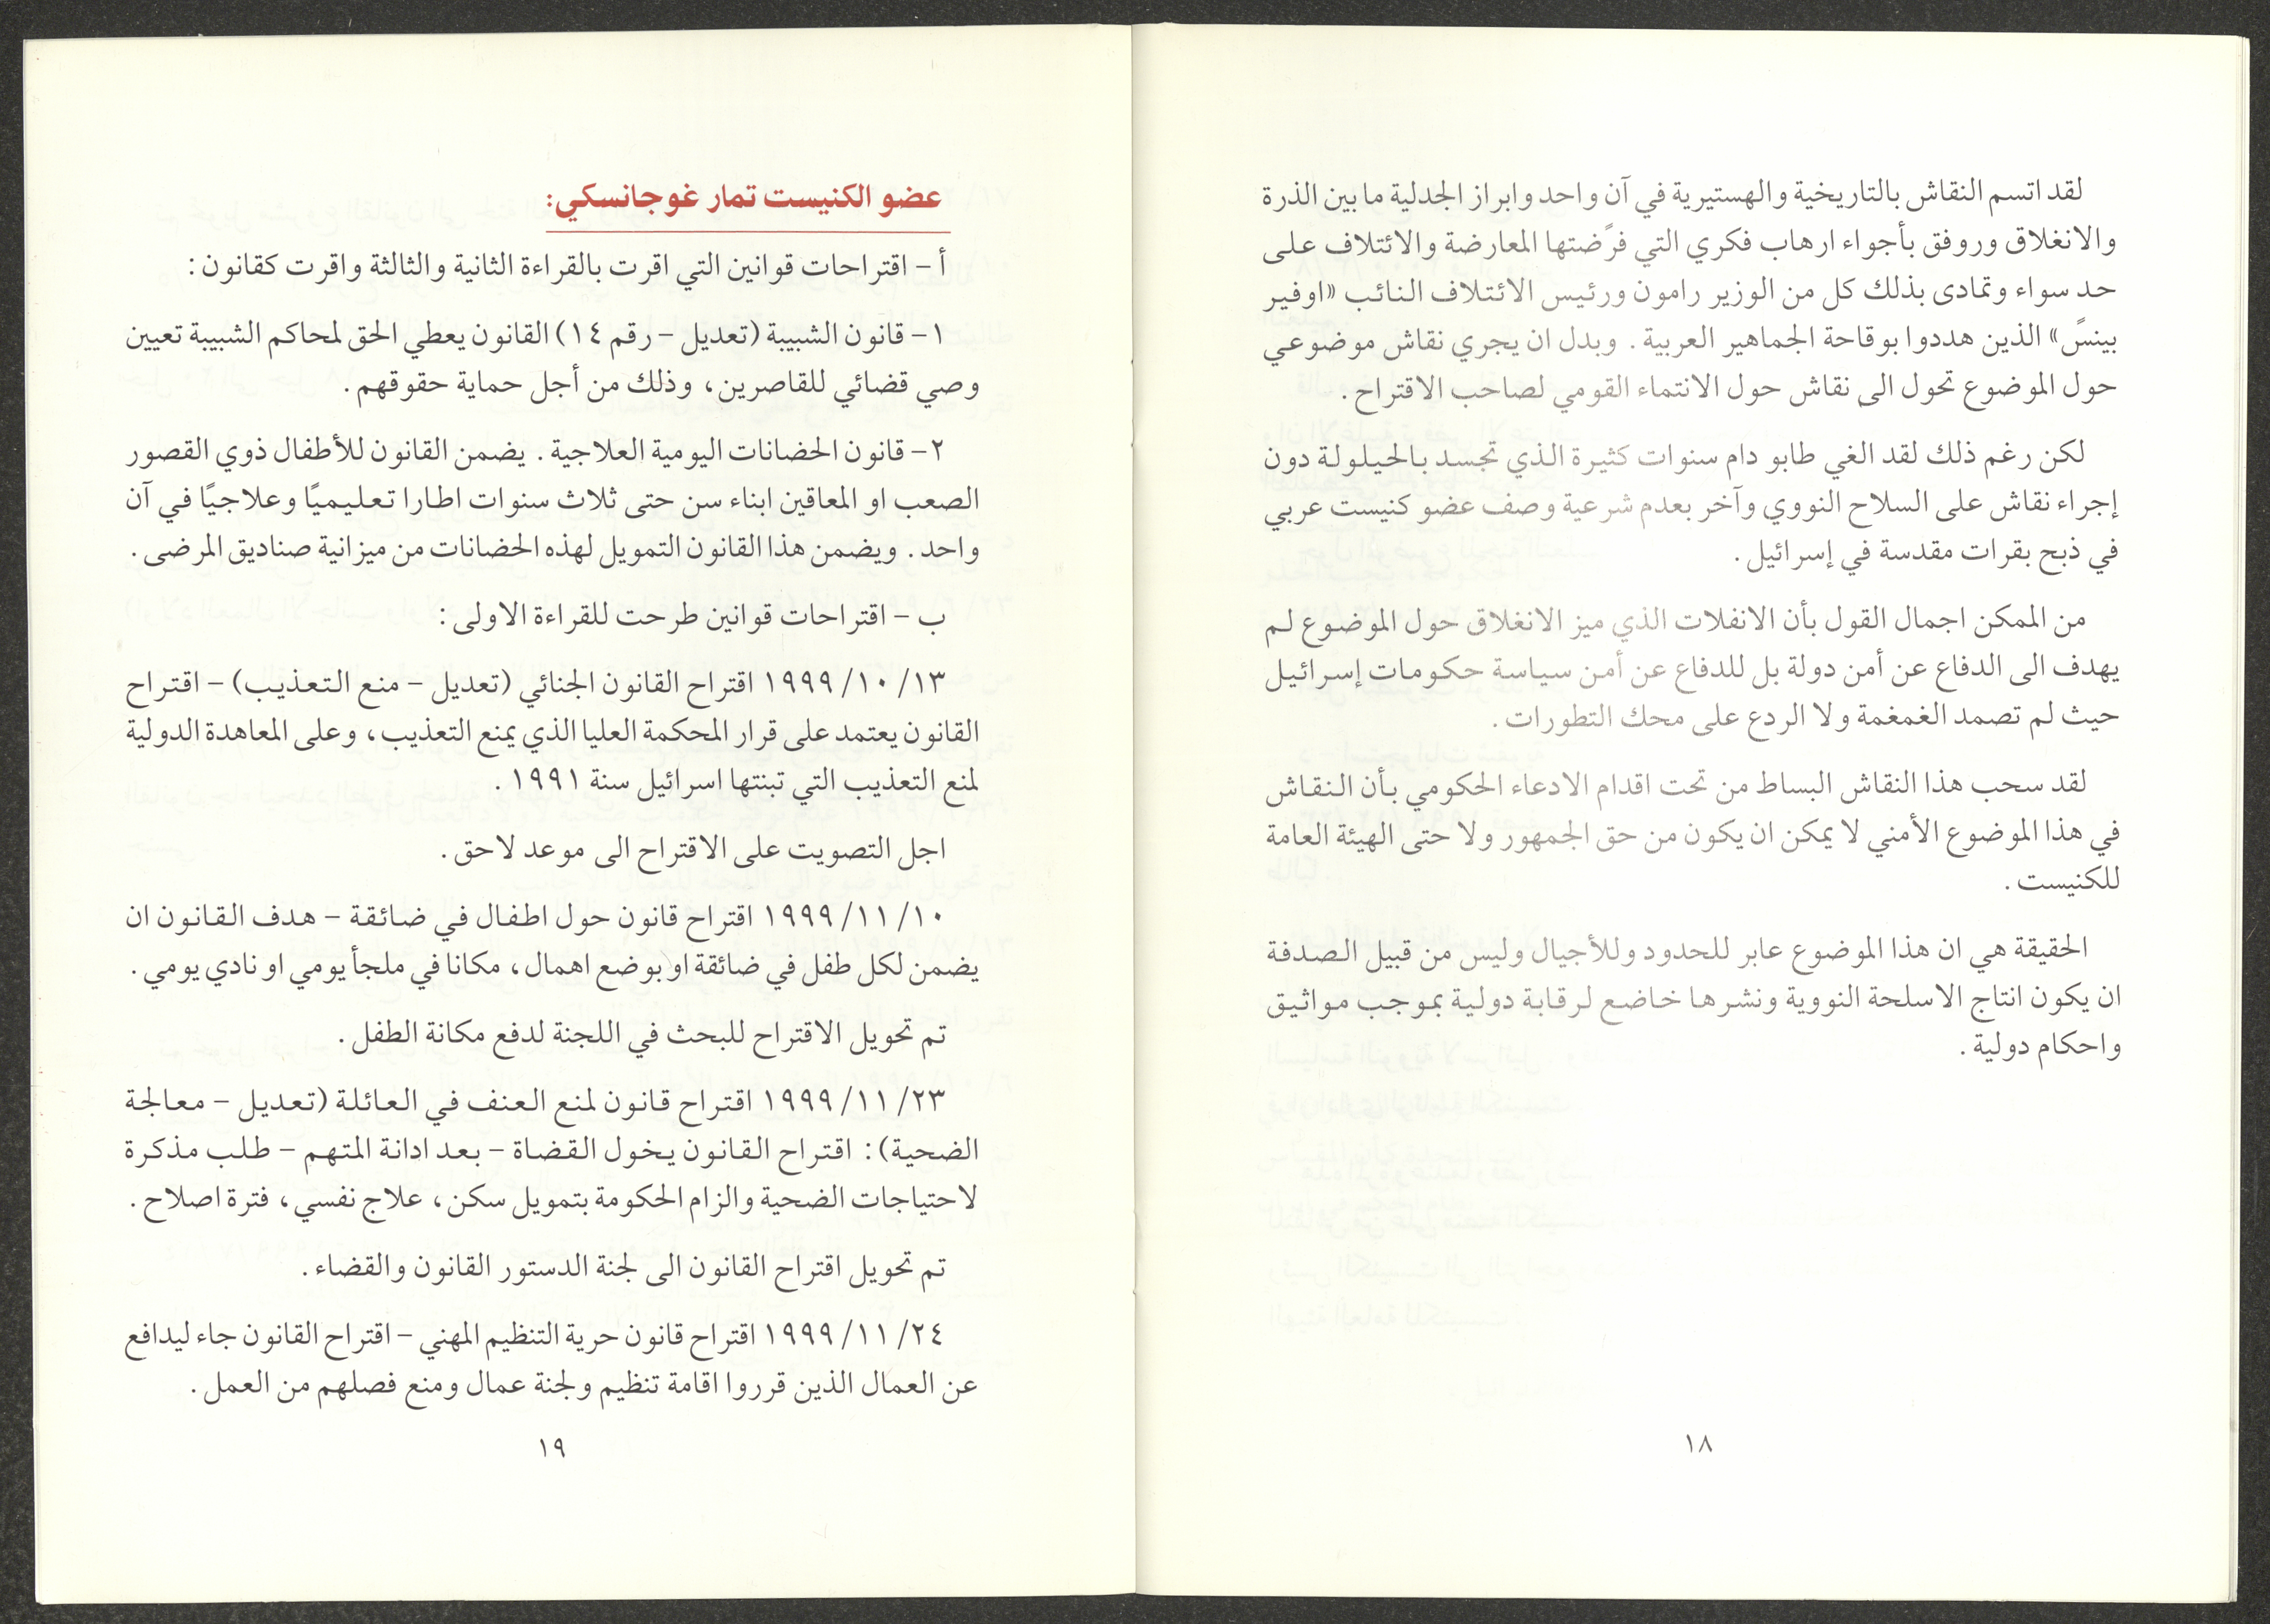 لقد اتسم النقاش بالتاريخية والهستيرية في آن واحد وابراز الجدلية ما بين الذرة
والانغلاق وروفق بأجواء ارهاب فكري التي فرًضتها المعارضة والائتلاف على
حد سواء وتمادى بذلك كل من الوزير رامون ورئيس الائتلاف النائب «اوفير
بينسً» الذين هددوا بوقاحة الجماهير العربية . وبدل ان يجري نقاش موضوعي
حول الموضوع تحول الى نقاش حول الانتماء القومي لصاحب الاقتراح .
لكن رغم ذلك لقد الغي طابو دام سنوات كثيرة الذي تجسد بالحيلولة دون
إجراء نقاش على السلاح النووي وآخر بعدم شرعية وصف عضو كنيست عربي
في ذبح بقرات مقدسة في إسرائيل .
من الممكن اجمال القول بأن الانفلات الذي ميز الانغلاق حول الموضوع لم
يهدف الى الدفاع عن أمن دولة بل للدفاع عن أمن سياسة حكومات إسرائيل
حيث لم تصمد الغمغمة ولا الردع على محك التطورات .
لقد سحب هذا النقاش البساط من تحت اقدام الادعاء الحكومي بأن النقاش
في هذا الموضوع الأمني لا يمكن ان يكون من حق الجمهور ولا حتى الهيئة العامة
للكنيست .
الحقيقة هي ان هذا الموضوع عابر للحدود وللأجيال وليس من قبيل الصدفة
ان يكون انتاج الاسلحة النووية ونشرها خاضع لرقابة دولية بموجب مواثيق
واحكام دولية .
١٨
عضو الكنيست تمار غوجانسكي:
أ – اقتراحات قوانين التي اقرت بالقراءة الثانية والثالثة واقرت كقانون :
١– قانون الشبيبة (تعديل – رقم ١٤) القانون يعطي الحق لمحاكم الشبيبة تعيين
وصي قضائي للقاصرين، وذلك من أجل حماية حقوقهم .
٢– قانون الحضانات اليومية العلاجية . يضمن القانون للأطفال ذوي القصور
الصعب او المعاقين ابناء سن حتى ثلاث سنوات اطارا تعليميًا وعلاجيًا في آن
واحد . ويضمن هذا القانون التمويل لهذه الحضانات من ميزانية صناديق المرضى .
ب – اقتراحات قوانين طرحت للقراءة الاولى :
١٣/ ١٠/ ١٩٩٩ اقتراح القانون الجنائي (تعديل – منع التعذيب) – اقتراح
القانون يعتمد على قرار المحكمة العليا الذي يمنع التعذيب، وعلى المعاهدة الدولية
لمنع التعذيب التي تبنتها اسرائيل سنة ١٩٩١ .
اجل التصويت على الاقتراح الى موعد لاحق .
١٠/ ١١/ ١٩٩٩ اقتراح قانون حول اطفال في ضائقة – هدف القانون ان
يضمن لكل طفل في ضائقة او بوضع اهمال، مكانا في ملجأ يومي او نادي يومي .
تم تحويل الاقتراح للبحث في اللجنة لدفع مكانة الطفل .
٢٣/ ١١/ ١٩٩٩ اقتراح قانون لمنع العنف في العائلة (تعديل – معالجة
الضحية) : اقتراح القانون يخول القضاة – بعد ادانة المتهم – طلب مذكرة
لاحتياجات الضحية والزام الحكومة بتمويل سكن، علاج نفسي، فترة اصلاح .
تم تحويل اقتراح القانون الى لجنة الدستور القانون والقضاء .
٢٤/ ١١/ ١٩٩٩ اقتراح قانون حرية التنظيم المهني – اقتراح القانون جاء ليدافع
عن العمال الذين قرروا اقامة تنظيم ولجنة عمال ومنع فصلهم من العمل .
١٩